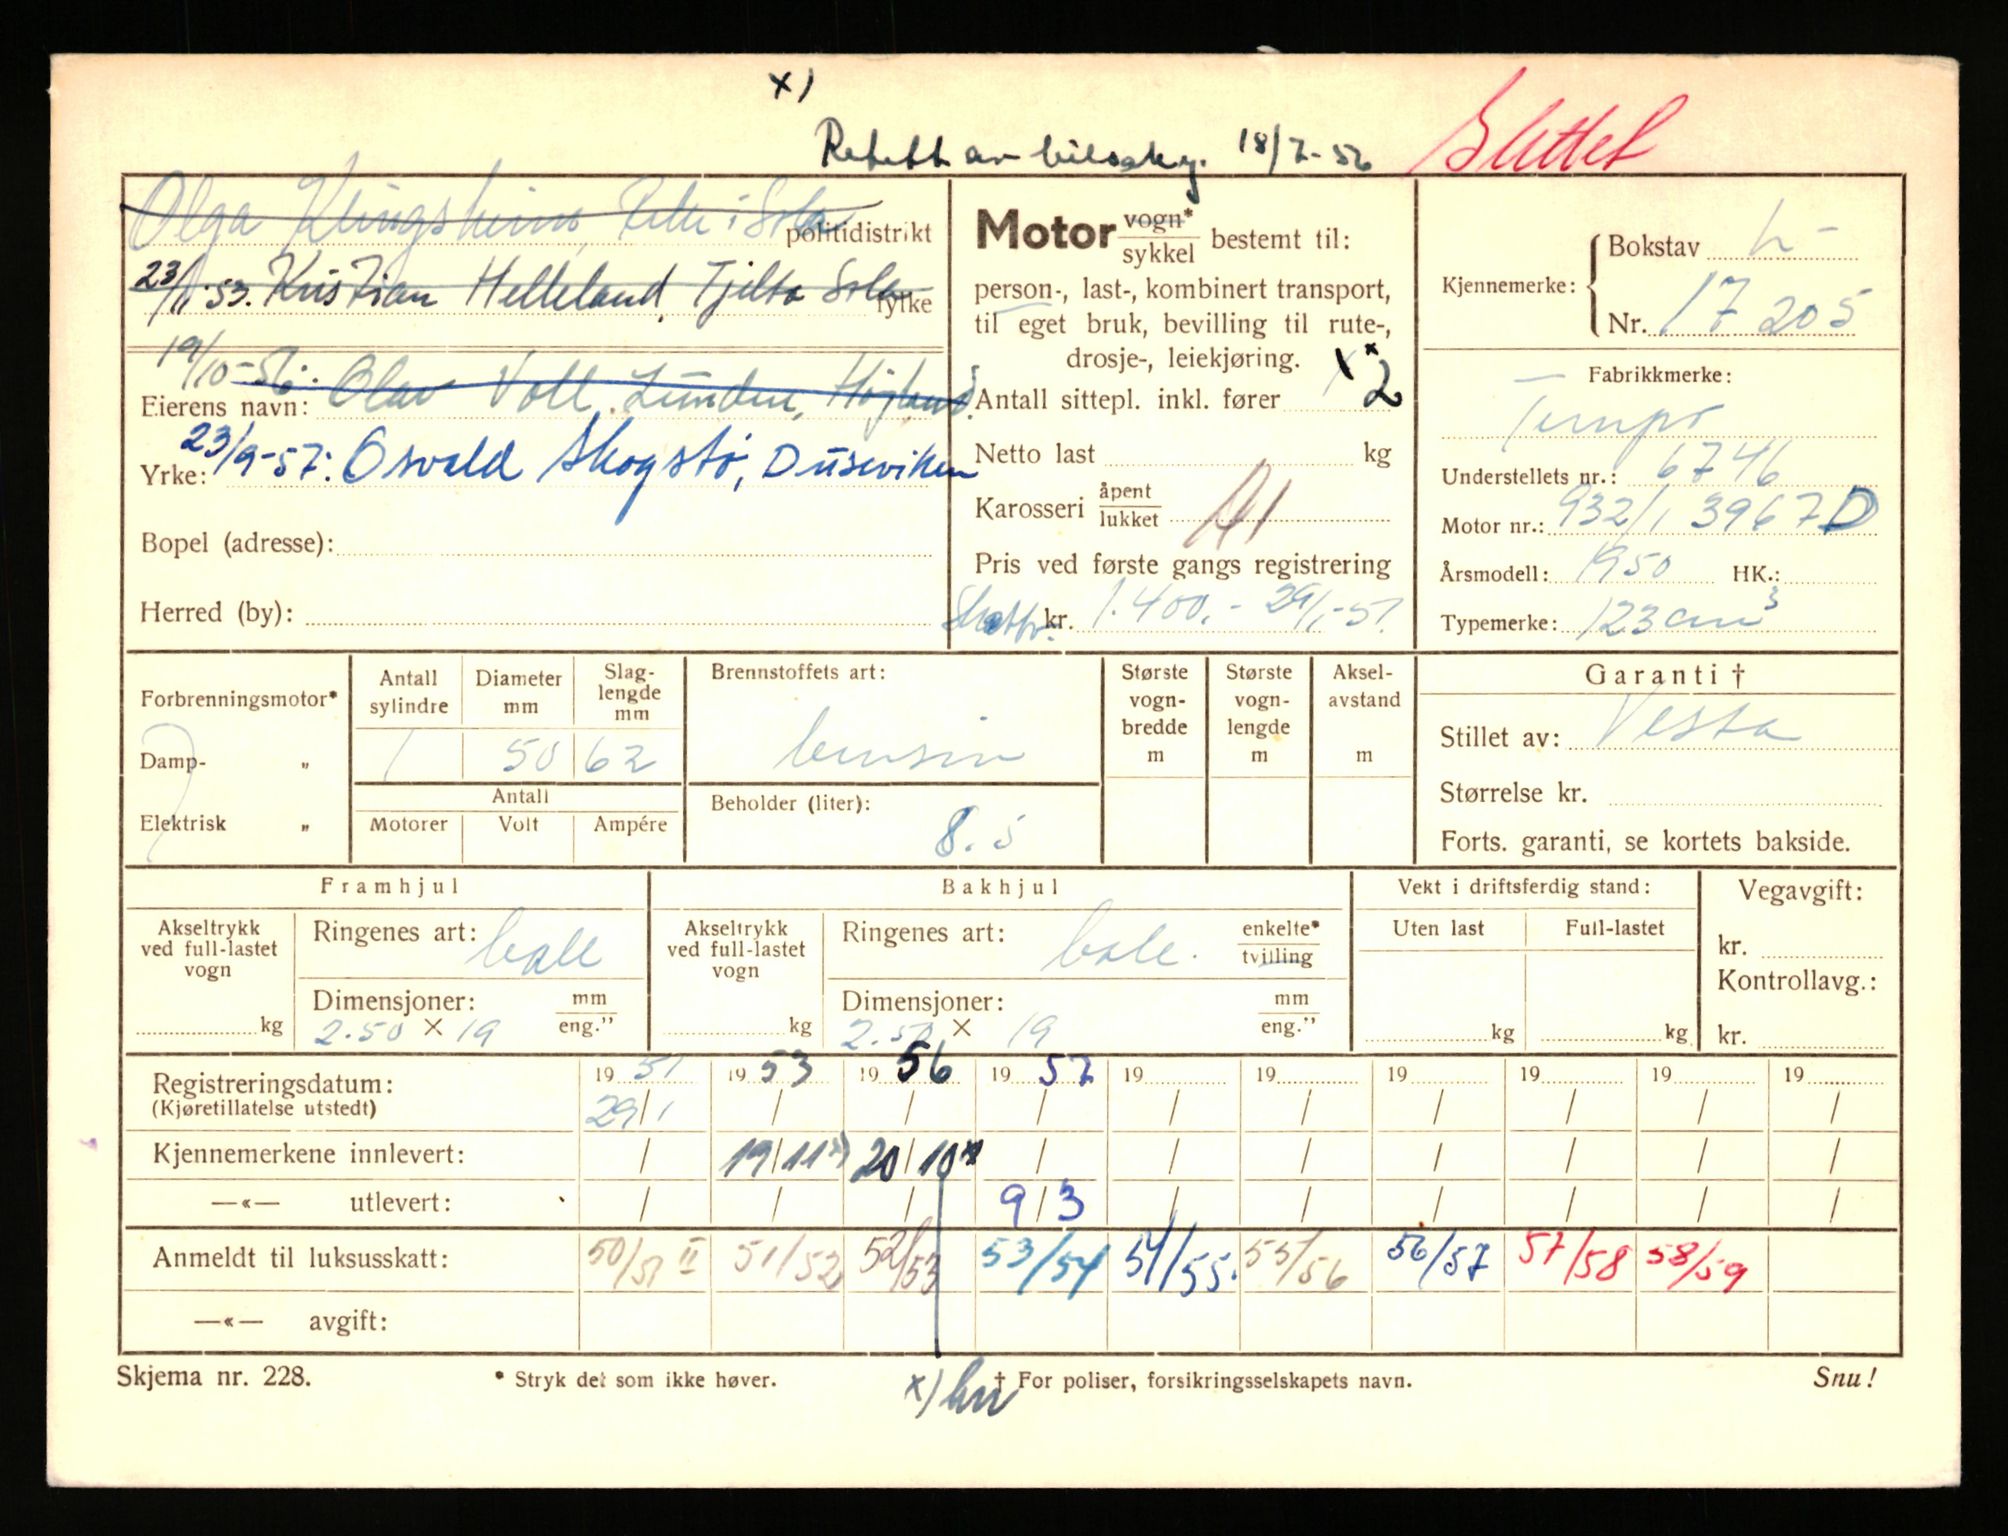 x)
av bilsaky. 18/7-56 Slettet
Olga Klingsheim, i Sola
politidistrikt
23/11-53. Kristian Helleland, Tjelta Sola
fylke
19/10-56: Olav Voll, Lunden, Högland
Eierens navn:
23/9-57: Osvald Skogstö, Duseviken
Yrke:
Bopel (adresse):
Herred (by):
Motor vogn* / sykkel bestemt til:
person-, last-, kombinert transport,
til eget bruk, bevilling til rute-,
drosje-, leiekjøring.
Antall sittepl. inkl. fører x 2
Netto last kg
Karosseri åpent / lukket A1
Pris ved første gangs registrering
kr. 1.400.- 29/1-51.
Kjennemerke: Bokstav L-
Nr. 17205
Fabrikkmerke:
Tempo
Understellets nr.: 6746
Motor nr.: 932/1 3967D
Årsmodell: 1950 HK.:
Typemerke: 123 cm3
Forbrenningsmotor*
Damp- „
Elektrisk „
Antall sylindre Diameter mm Slag-lengde mm
1 50 62
Antall
Motorer Volt Ampére
Brennstoffets art:
bensin
Beholder (liter):
8.5
Største vogn-bredde m
Største vogn-lengde m
Aksel-avstand m
Garanti †
Stillet av: Vesta
Størrelse kr.
Forts. garanti, se kortets bakside.
Framhjul
Akseltrykk ved full-lastet vogn
kg
Ringenes art: ball
Dimensjoner: mm / eng."
2.50 x 19
Bakhjul
Akseltrykk ved full-lastet vogn
kg
Ringenes art: ball. enkelte* / tvilling
Dimensjoner: mm / eng."
2.50 x 19
Vekt i driftsferdig stand:
Uten last Full-lastet
kg kg
Vegavgift:
kr.
Kontrollavg.:
kr.
Registreringsdatum: 19 51 19 53 19 56 19 57 19 19 19 19 19 19
(Kjøretillatelse utstedt) 29/1 / / / / / / / / /
Kjennemerkene innlevert: / 19/11 x) 20/10 x / / / / / / /
—«— utlevert: / / / 9/3 / / / / / /
Anmeldt til luksusskatt: 50/51 II 51/52 52/53 53/54 54/55. 55/56 56/57 57/58 58/59
—«— avgift:
Skjema nr. 228. * Stryk det som ikke høver. † For poliser, forsikringsselskapets navn. Snu!
x)